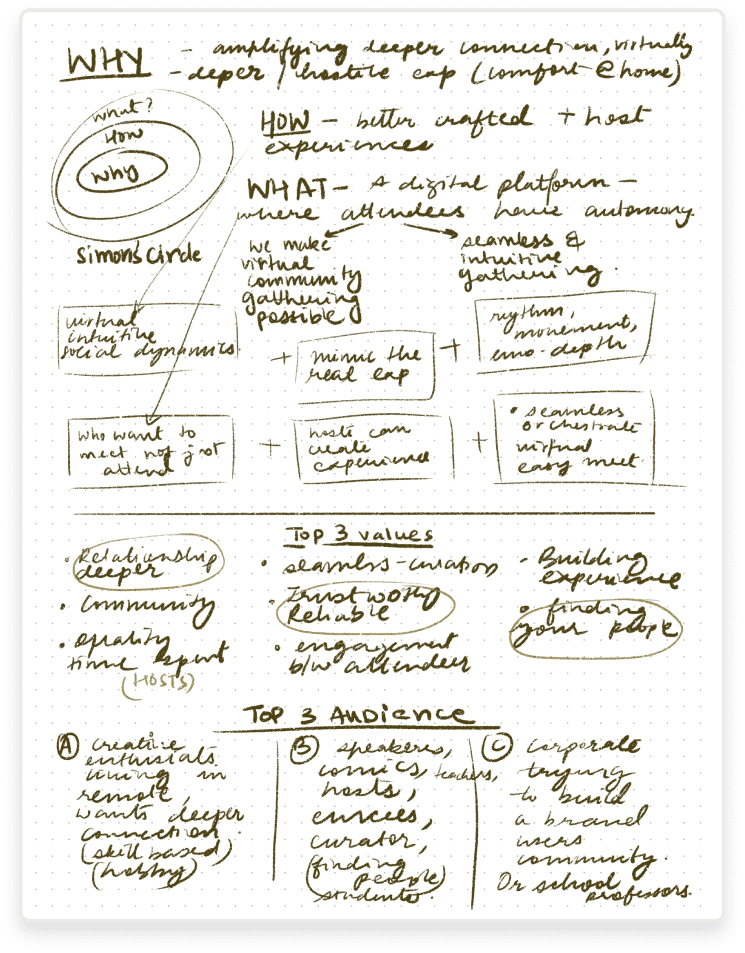 WHY - amplifying deeper connection, virtually
- deper / hostile exp (comfort @ home)
what?
How
why
Simon's Circle
HOW - better crafted + host
experiences
WHAT - A digital platform -
where attendees have autonomy.
we make
virtual
community
gathering
possible
seamless &
intuitive
gathering.
virtual
intuitive
social dynamics
+
mimic the
real exp
+
rhythm,
movement,
emo-depth
who want to
meet not just
attend
+
hosts can
create
experience
+
• seamless
orchestrate
virtual
easy meet
Top 3 values
• Relationship
deeper
• Community
• quality
time spent
(HOSTS)
• seamless-curation
• Trustworthy
Reliable
• engagement
b/w attendees
• Building
experience
• finding
your people
TOP 3 AUDIENCE
A creative
enthusiats
living in
remote,
wants deeper
connection.
(skill based)
(hobby)
B speakers,
comics, teachers,
hosts,
emcees,
curator,
(finding
people)
students.
C corporate
trying
to build
a brand
users
community.
Or school
professors.